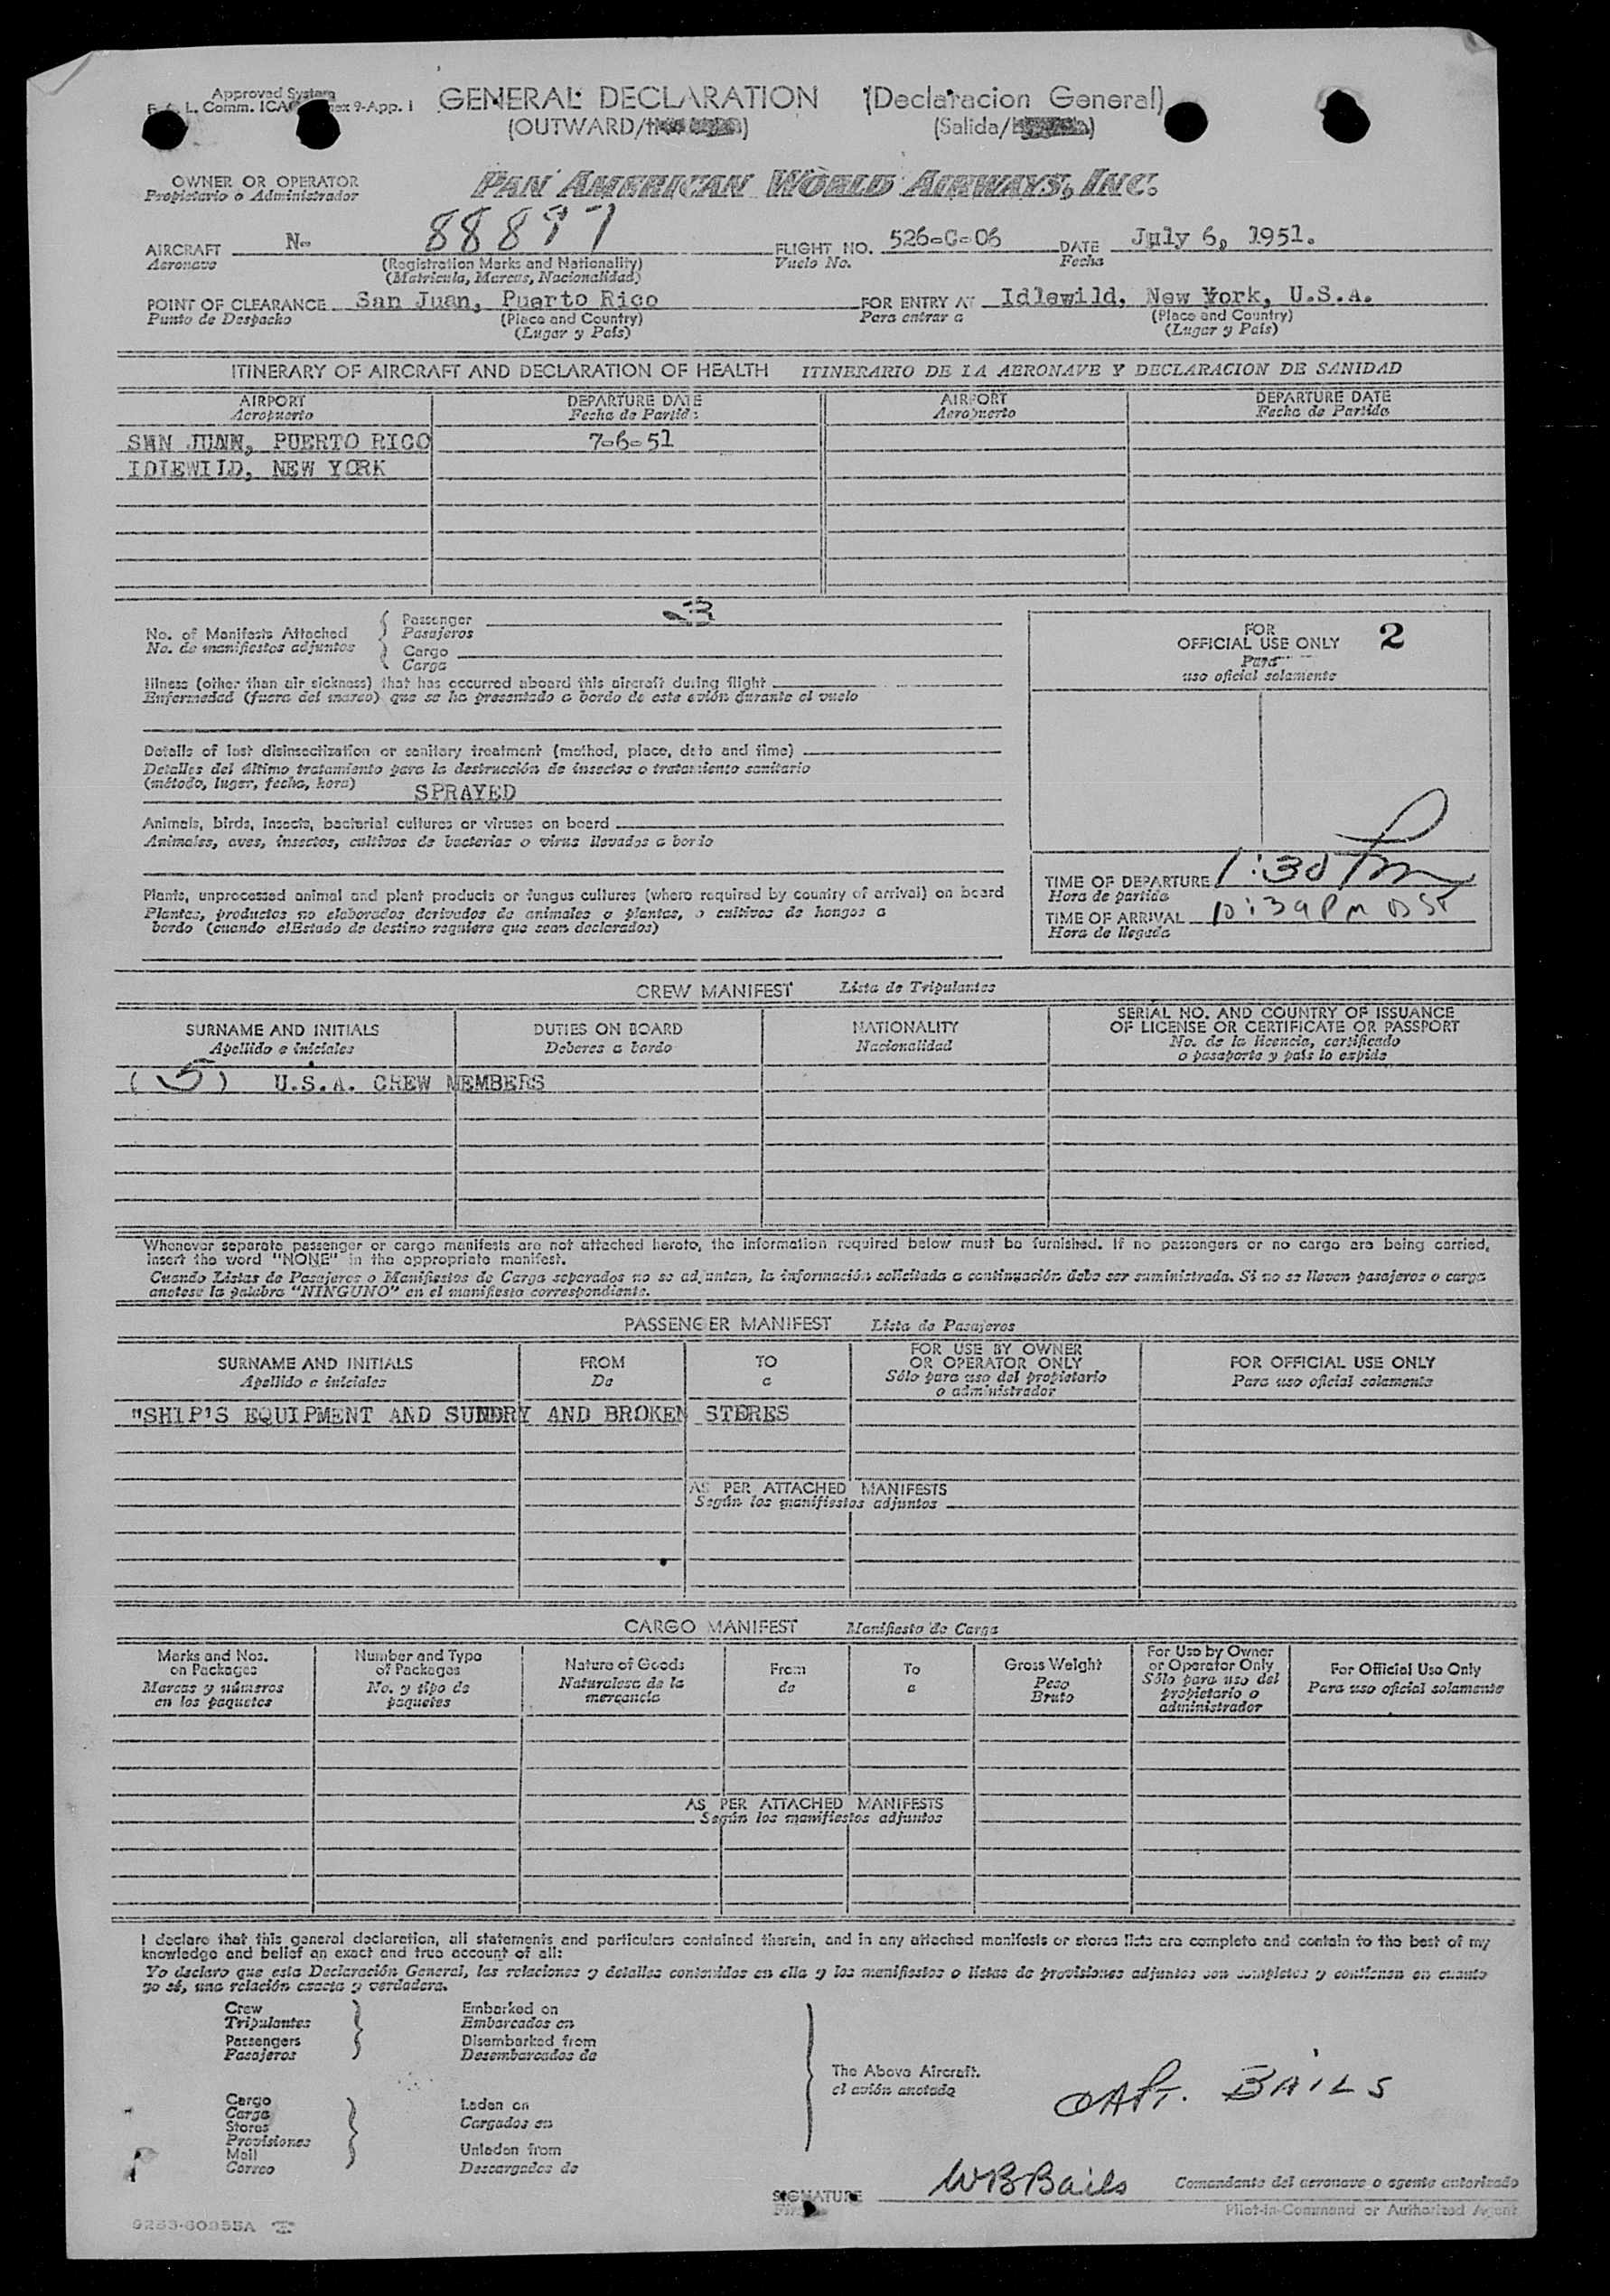 Approved System
L. Comm. ICA 9-App. 1
GENERAL DECLARATION (Declaracion General)
(OUTWARD/ ) (Salida/ )
OWNER OR OPERATOR PAN AMERICAN WORLD AIRWAYS, INC.
Propietario o Administrador
AIRCRAFT N- 88897 FLIGHT NO. 526-C-06 DATE July 6, 1951.
Aeronave (Registration Marks and Nationality) Vuelo No. Fecha
(Matricula, Marcas, Nacionalidad)
POINT OF CLEARANCE San Juan, Puerto Rico FOR ENTRY AT Idlewild, New York, U.S.A.
Punto de Despacho (Place and Country) Para entrar a (Place and Country)
(Lugar y País) (Lugar y País)
ITINERARY OF AIRCRAFT AND DECLARATION OF HEALTH ITINERARIO DE LA AERONAVE Y DECLARACION DE SANIDAD
AIRPORT DEPARTURE DATE AIRPORT DEPARTURE DATE
Aeropuerto Fecha de Partida Aeropuerto Fecha de Partida
SAN JUAN, PUERTO RICO 7-6-51
IDLEWILD, NEW YORK
No. of Manifests Attached { Passenger 3
No. de manifiestos adjuntos Pasajeros
Cargo
Carga
Illness (other than air sickness) that has occurred aboard this aircraft during flight
Enfermedad (fuera del mareo) que se ha presentado a bordo de este avión durante el vuelo
Details of last disinsectization or sanitary treatment (method, place, date and time)
Detalles del último tratamiento para la destrucción de insectos o tratamiento sanitario
(método, lugar, fecha, hora) SPRAYED
Animals, birds, insects, bacterial cultures or viruses on board
Animales, aves, insectos, cultivos de bacterias o virus llevados a bordo
Plants, unprocessed animal and plant products or fungus cultures (where required by country of arrival) on board
Plantas, productos no elaborados derivados de animales o plantas, o cultivos de hongos a
bordo (cuando elEstado de destino requiere que sean declarados)
FOR
OFFICIAL USE ONLY 2
Para
uso oficial solamente
TIME OF DEPARTURE 1:30 Pm
Hora de partida
TIME OF ARRIVAL 10:39 PM DST
Hora de llegada
CREW MANIFEST Lista de Tripulantes
SURNAME AND INITIALS DUTIES ON BOARD NATIONALITY SERIAL NO. AND COUNTRY OF ISSUANCE
OF LICENSE OR CERTIFICATE OR PASSPORT
Apellido e iniciales Deberes a bordo Nacionalidad No. de la licencia, certificado
o pasaporte y país lo expide
(5) U.S.A. CREW MEMBERS
Whenever separate passenger or cargo manifests are not attached hereto, the information required below must be furnished. If no passengers or no cargo are being carried,
insert the word "NONE" in the appropriate manifest.
Cuando Listas de Pasajeros o Manifiestos de Carga separados no se adjuntan, la información solicitada a continuación debe ser suministrada. Si no se llevan pasajeros o carga
anotese la palabra "NINGUNO" en el manifiesto correspondiente.
PASSENGER MANIFEST Lista de Pasajeros
SURNAME AND INITIALS FROM TO FOR USE BY OWNER
OR OPERATOR ONLY FOR OFFICIAL USE ONLY
Apellido e iniciales De a Sólo para uso del propietario
o administrador Para uso oficial solamente
"SHIP'S EQUIPMENT AND SUNDRY AND BROKEN STORES
AS PER ATTACHED MANIFESTS
Según los manifiestos adjuntos
CARGO MANIFEST Manifiesto de Carga
Marks and Nos.
on Packages
Marcas y números
en los paquetes
Number and Type
of Packages
No. y tipo de
paquetes
Nature of Goods
Naturaleza de la
mercancia
From
de
To
a
Gross Weight
Peso
Bruto
For Use by Owner
or Operator Only
Sólo para uso del
propietario o
administrador
For Official Use Only
Para uso oficial solamente
AS PER ATTACHED MANIFESTS
Según los manifiestos adjuntos
I declare that this general declaration, all statements and particulars contained therein, and in any attached manifests or stores lists are complete and contain to the best of my
knowledge and belief an exact and true account of all:
Yo declaro que esta Declaración General, las relaciones y detalles contenidos en ella y los manifiestos o listas de provisiones adjuntos son completos y contienen en cuanto
yo sé, una relación exacta y verdadera.
Crew Embarked on
Tripulantes Embarcados en
Passengers Disembarked from
Pasajeros Desembarcados de
The Above Aircraft.
el avión anotado
CAPT. BAILS
Cargo Laden on
Carga Cargados en
Stores
Provisiones
Mail Unladen from
Correo Descargados de
SIGNATURE WBBails Comandante del aeronave o agente autorizado
Pilot-in-Command or Authorized Agent